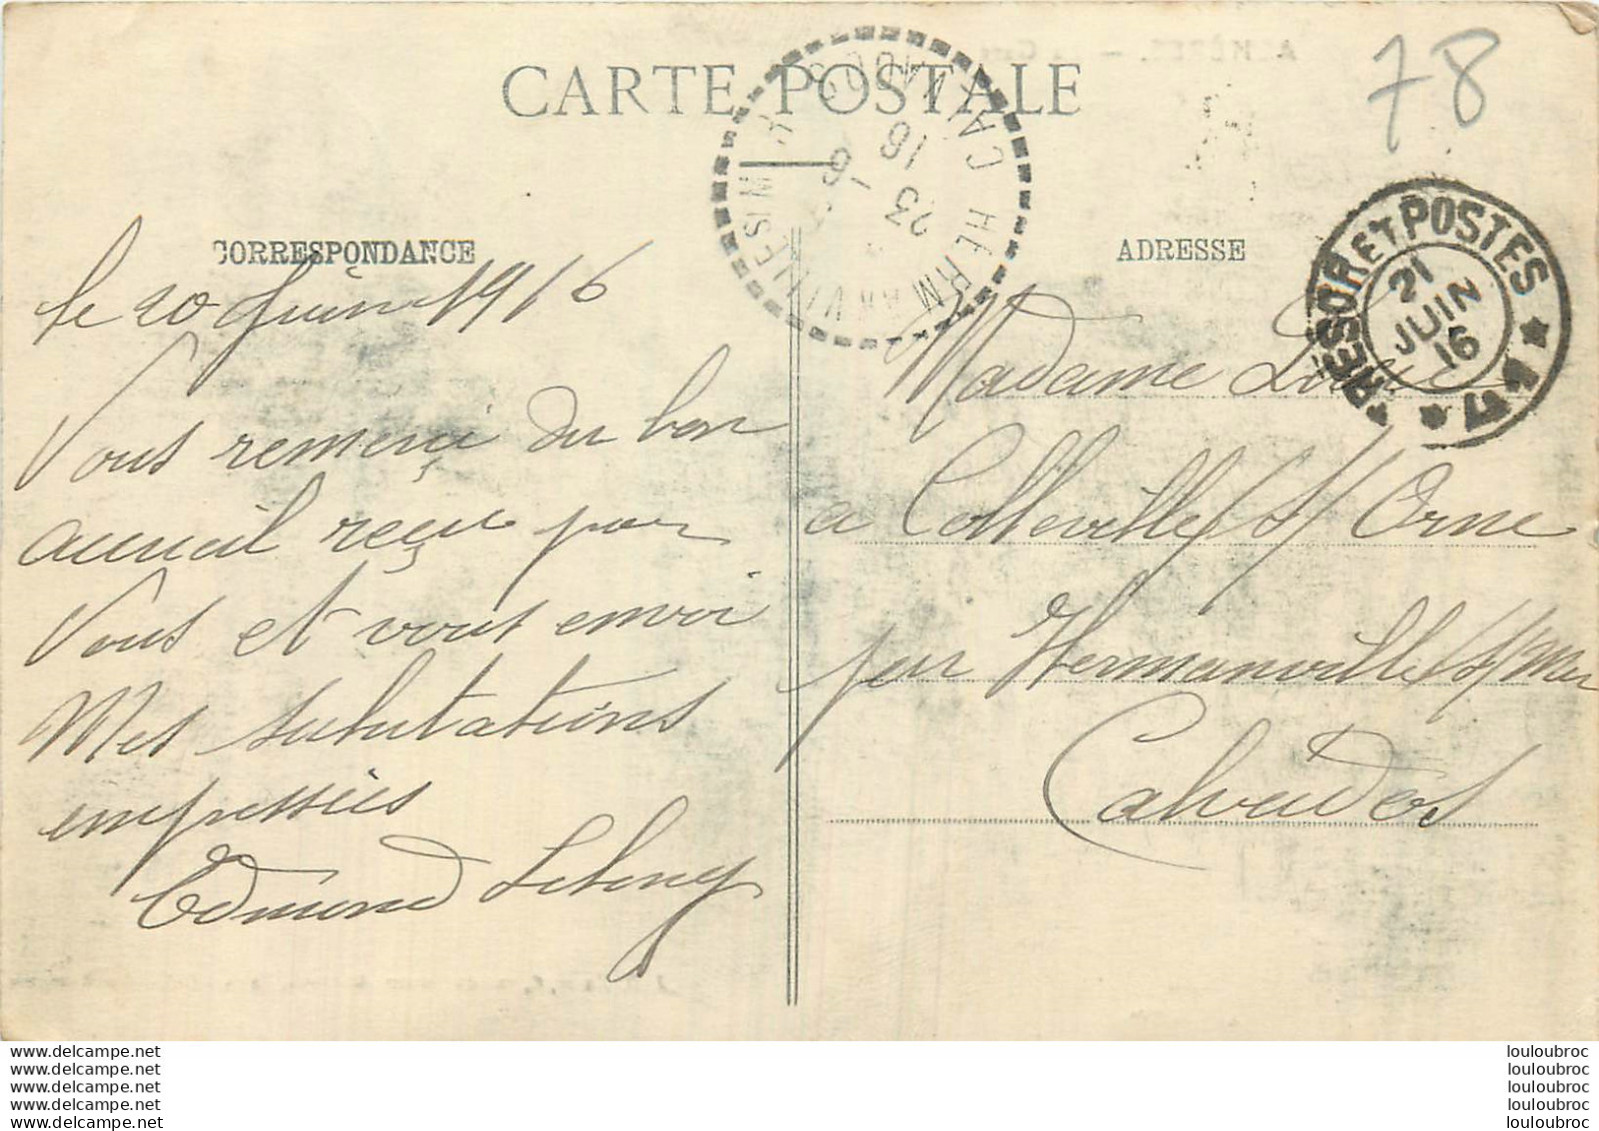 CARTE POSTALE
78
CORRESPONDANCE
ADRESSE
TRESOR ET POSTES
21
JUIN
16
HERMANVILLE
CALVADOS
23 - 6
16
le 20 Juin 1916
Vous remerci du bon
acceuil reçu par
Vous et vous envoi
Mes salutations
empressées
Edmond
Madame
a Colleville s/ Orne
par Hermanville s/ Mer
Calvados
www.delcampe.net
www.delcampe.net
www.delcampe.net
www.delcampe.net
www.delcampe.net
louloubroc
louloubroc
louloubroc
louloubroc
louloubroc